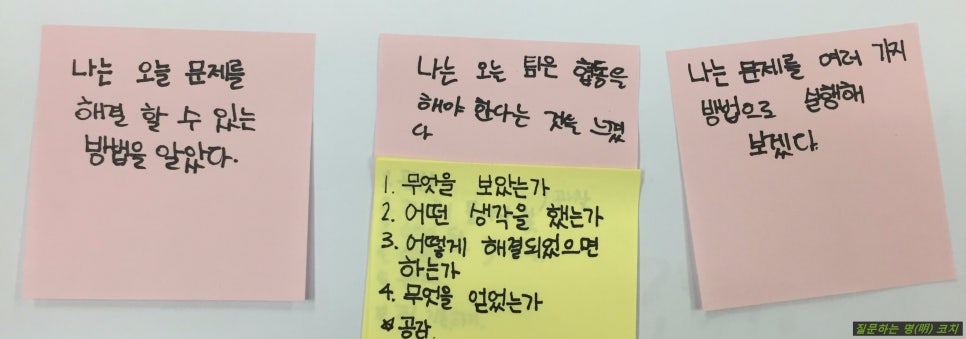 나는 오늘 문제를
해결 할 수 있는
방법을 알았다.
나는 오는 팀은 협동을
해야 한다는 것을 느꼈
다
1. 무엇을 보았는가
2. 어떤 생각을 했는가
3. 어떻게 해결되었으면
하는가
4. 무엇을 얻었는가
* 공감
나는 문제를 여러 가지
방법으로 실행해
보겠다.
질문하는 명(明) 코치